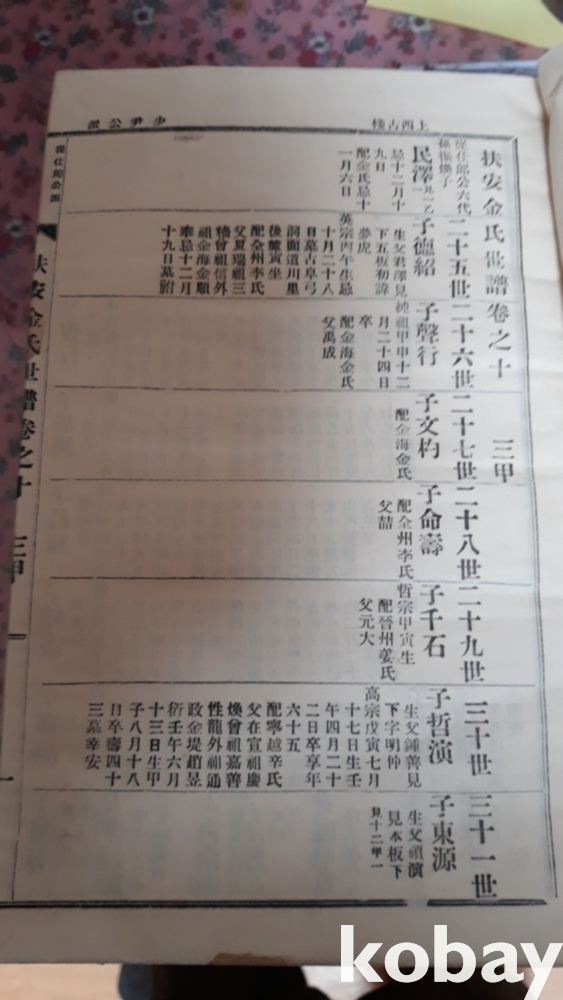 上西古棧
少尹公派
扶安金氏世譜卷之十 三甲
二十五世
二十六世
二十七世
二十八世
二十九世
三十世
三十一世
從仕郎公六代
孫振煥子
民澤
忌十二月十
九日
配金氏忌十
一月六日
子德紹
生父君澤見
下五板初諱
夢虎
英宗丙午生忌
十月二十八
日墓古阜弓
洞面道川里
後龍寅坐
配全州李氏
父夏瑞祖三
穡曾祖信外
祖金海金順
奉忌十二月
十九日墓祔
子聲行
純祖甲申十二
月二十四日
卒
配金海金氏
父禹成
子文杓
配金海金氏
子命壽
配全州李氏
父喆
子千石
哲宗甲寅生
配晉州姜氏
父元大
子哲演
生父鍾善見
下字明仲
高宗戊寅七月
十七日生壬
午四月二十
二日卒享年
六十五
配寧越辛氏
父在宣祖慶
煥曾祖嘉善
性龍外祖通
政金堤趙昱
衍壬午六月
十三日生甲
子八月十八
日卒壽四十
三墓幸安
子東源
生父碩演
見本板下
見十二甲一
從仕郎公派
扶安金氏世譜卷之十 三甲
一
kobay